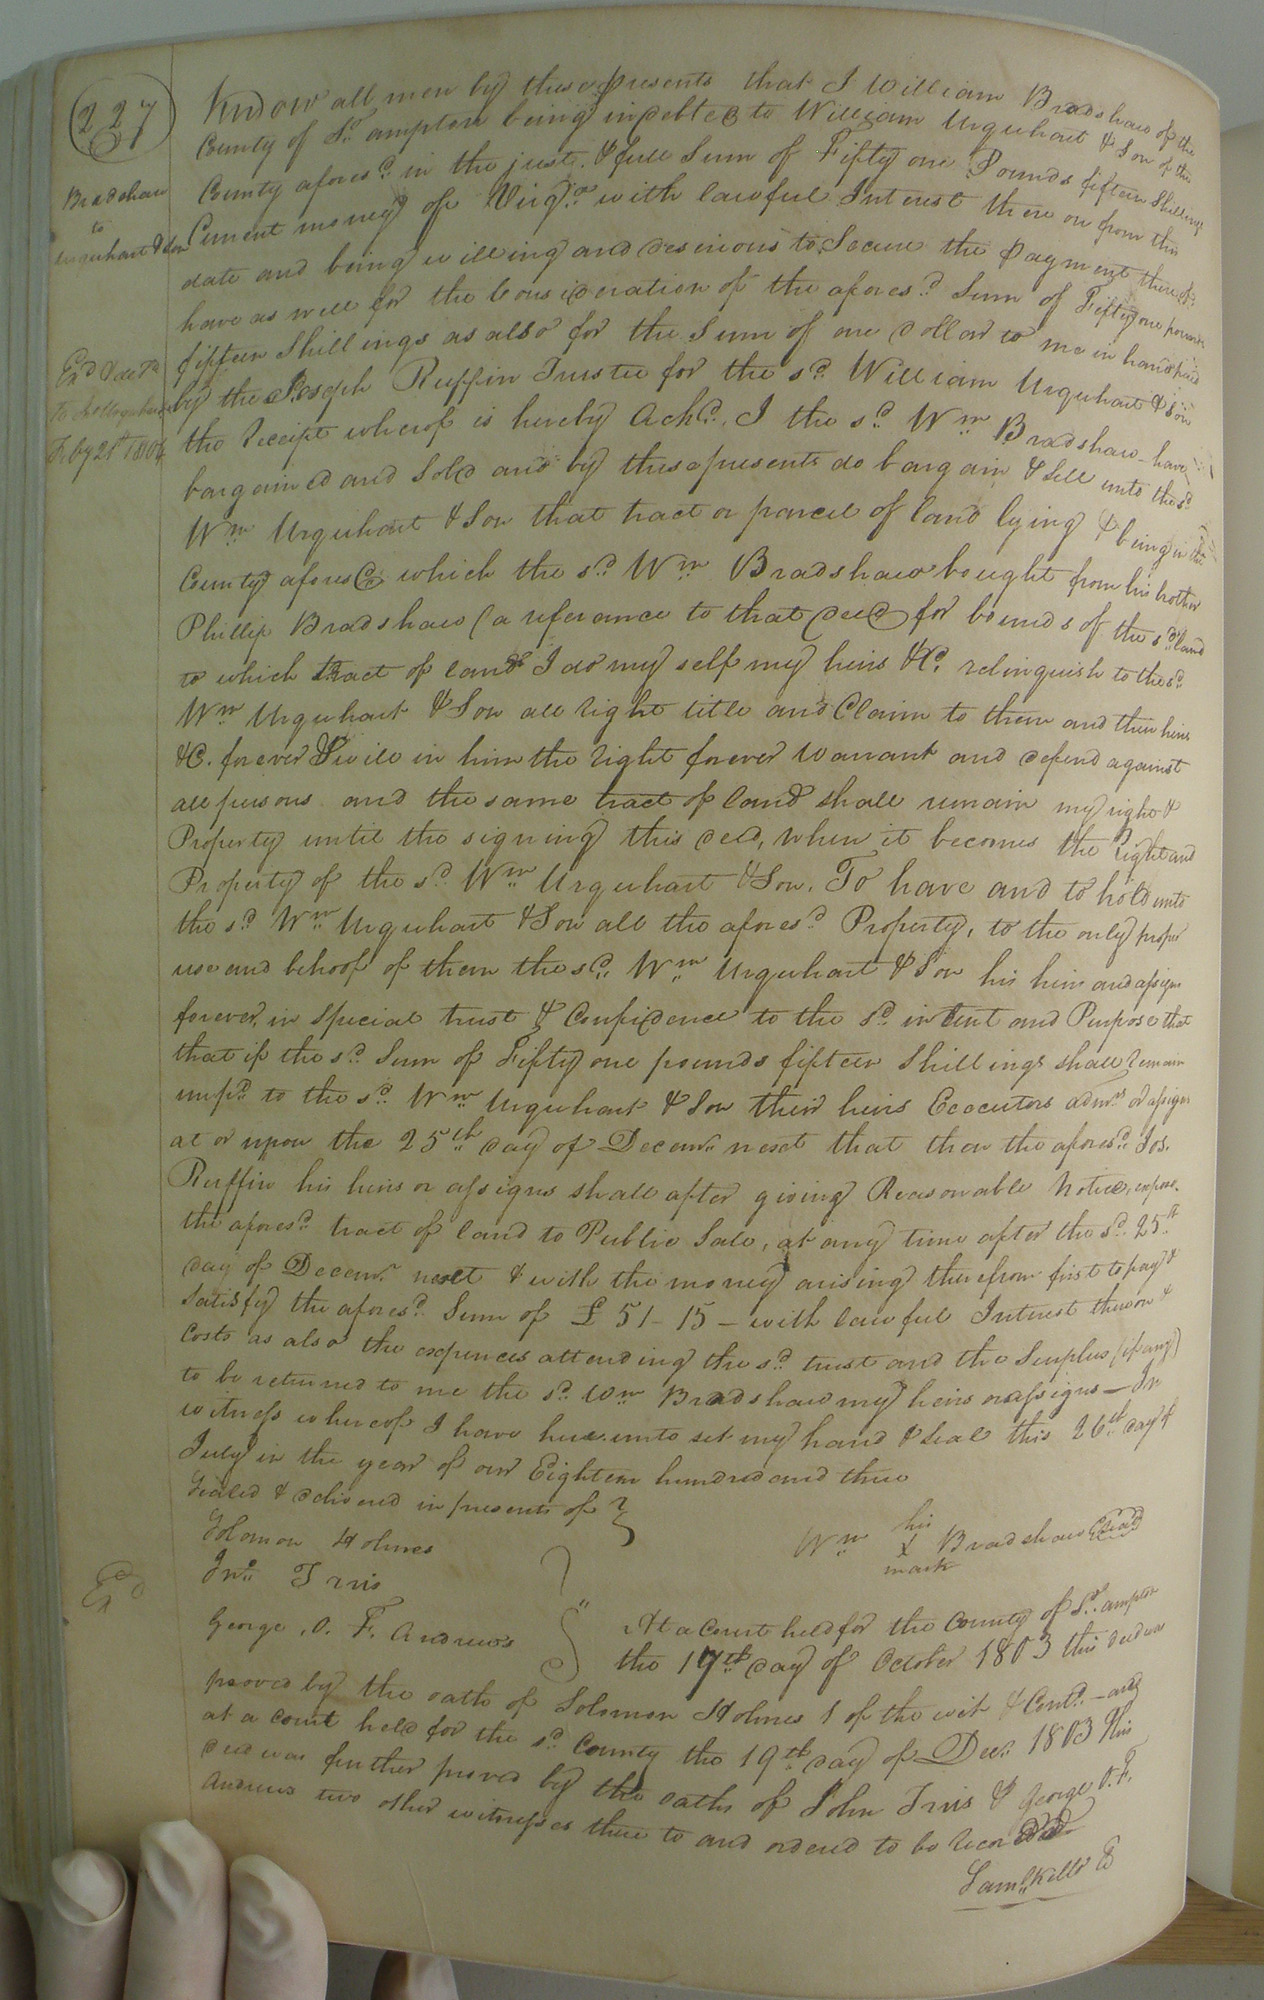 227
Bradshaw
to
Urquhart & Son
Exd & del'd
to
Feby 21st 1804
Know all men by these presents that I William Bradshaw of the
County of So.ampton being indebted to William Urquhart & Son of the
County afores.d in the just & full Sum of Fifty one Pounds fifteen Shillings
Current money of Virg.a with lawful Interest there on from this
date and being willing and desirious to Secure the Payment thereof
have as well for the Consideration of the afores.d Sum of Fifty one pounds
fifteen Shillings as also for the Sum of one dollar to me in hand paid
by the Joseph Ruffin Trustee for the s.d William Urquhart & Son
the Receipt wherof is hereby Ack.d, I the s.d W.m Bradshaw have
bargained and Sold and by these presents do bargain & Sell unto the s.d
W.m Urquhart & Son that tract or parcel of land lying & being in the
County aforesd which the s.d W.m Bradshaw bought from his brother
Phillip Bradshaw (a referance to that deed for bounds of the s.d land
to which tract of land I do my self my heirs &C. relinquish to the s.d
W.m Urquhart & Son all right title and Claim to them and their heirs
&C. forever & will in him the right forever Warrant and defend against
all persons and the same tract of land shall remain my right &
Property until the signing this deed, when it becomes the Right and
Property of the s.d W.m Urquhart & Son, To have and to hold unto
the s.d W.m Urquhart & Son all the afores.d Property, to the only proper
use and behoof of them the s.d W.m Urquhart & Son his heirs and assigns
forever, in special trust & Confidence to the s.d intent and Purpose that
that if the s.d Sum of Fifty one pounds fifteen Shillings shall remain
unp.d to the s.d W.m Urquhart & Son their heirs Executors adm.rs or assigns
at or upon the 25th day of Decem.r next that then the afores.d Jos.
Ruffin his heirs or assigns shall after giving Reasonable Notice, expose
the afores.d tract of land to Public Sale, at any time after the s.d 25.th
day of Decem.r next & with the money arising therefrom first to pay &
Satisfy the afores.d Sum of £ 51-15 - with lawful Interest thereon &
Costs as also the expences attending the s.d trust and the Surplus (if any)
to be returned to me the s.d Wm Bradshaw my heirs or assigns - In
witness whereof I have hereunto set my hand & Seal this 26th day of
July in the year of our Eighteen hundred and three
Sealed & delivered in presents of }
Solomon Holmes
Jn.o Ivis
George O. F. Andrews
Wm his Bradshaw (Seal)
X
mark
Exd
At a Court held for the County of So.ampton
the 17th day of October 1803 this deed was
proved by the oath of Solomon Holmes 1 of the wit & Cont.d - and
at a court held for the s.d County the 19th day of Decr. 1803 This
deed was further proved by the oaths of John Ivis & George O. F.
Andrews two other witnesses there to and ordered to be recorded
Saml. Kello C